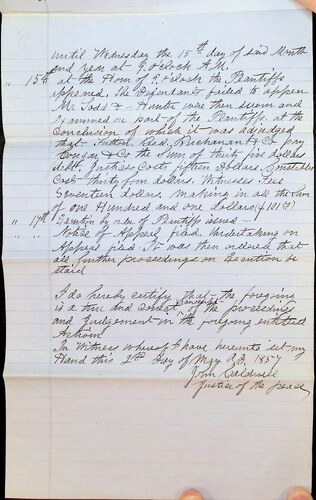 until Wednesday the 15th day of said Month
and year at 9, o'clock A.M.
" 15th at the Hour of 9, o'clock the Plaintiffs
appeared, the Defendants failed to appear
Mr Todd & Hunter were then sworn and
Examined on part of the Plaintiffs at the
Conclusion of which it was adjudged
that Fulton Reed, Buchanan & Co pay
& Co the Sum of thirty five dollars
debt, Justices Costs fifteen Dollars Constables
Cost thirty four dollars. Witnesses Fees
Seventeen dollars making in all the Sum
of one Hundred and one dollars ($101)
" " 17th Execution by order of Plaintiff issued —
Notice of Appeal filed, Undertaking on
Appeal filed It was then ordered that
all further proceedings on Execution be
staid
I do hereby certify that the foregoing
is a true and Correct Transcript of the proceedings
and Judgement in the foregoing entitled
Action
In Witness whereof I have hereunto set my
Hand this 2nd Day of May A.D, 1857
John Caldwell
Justice of the peace